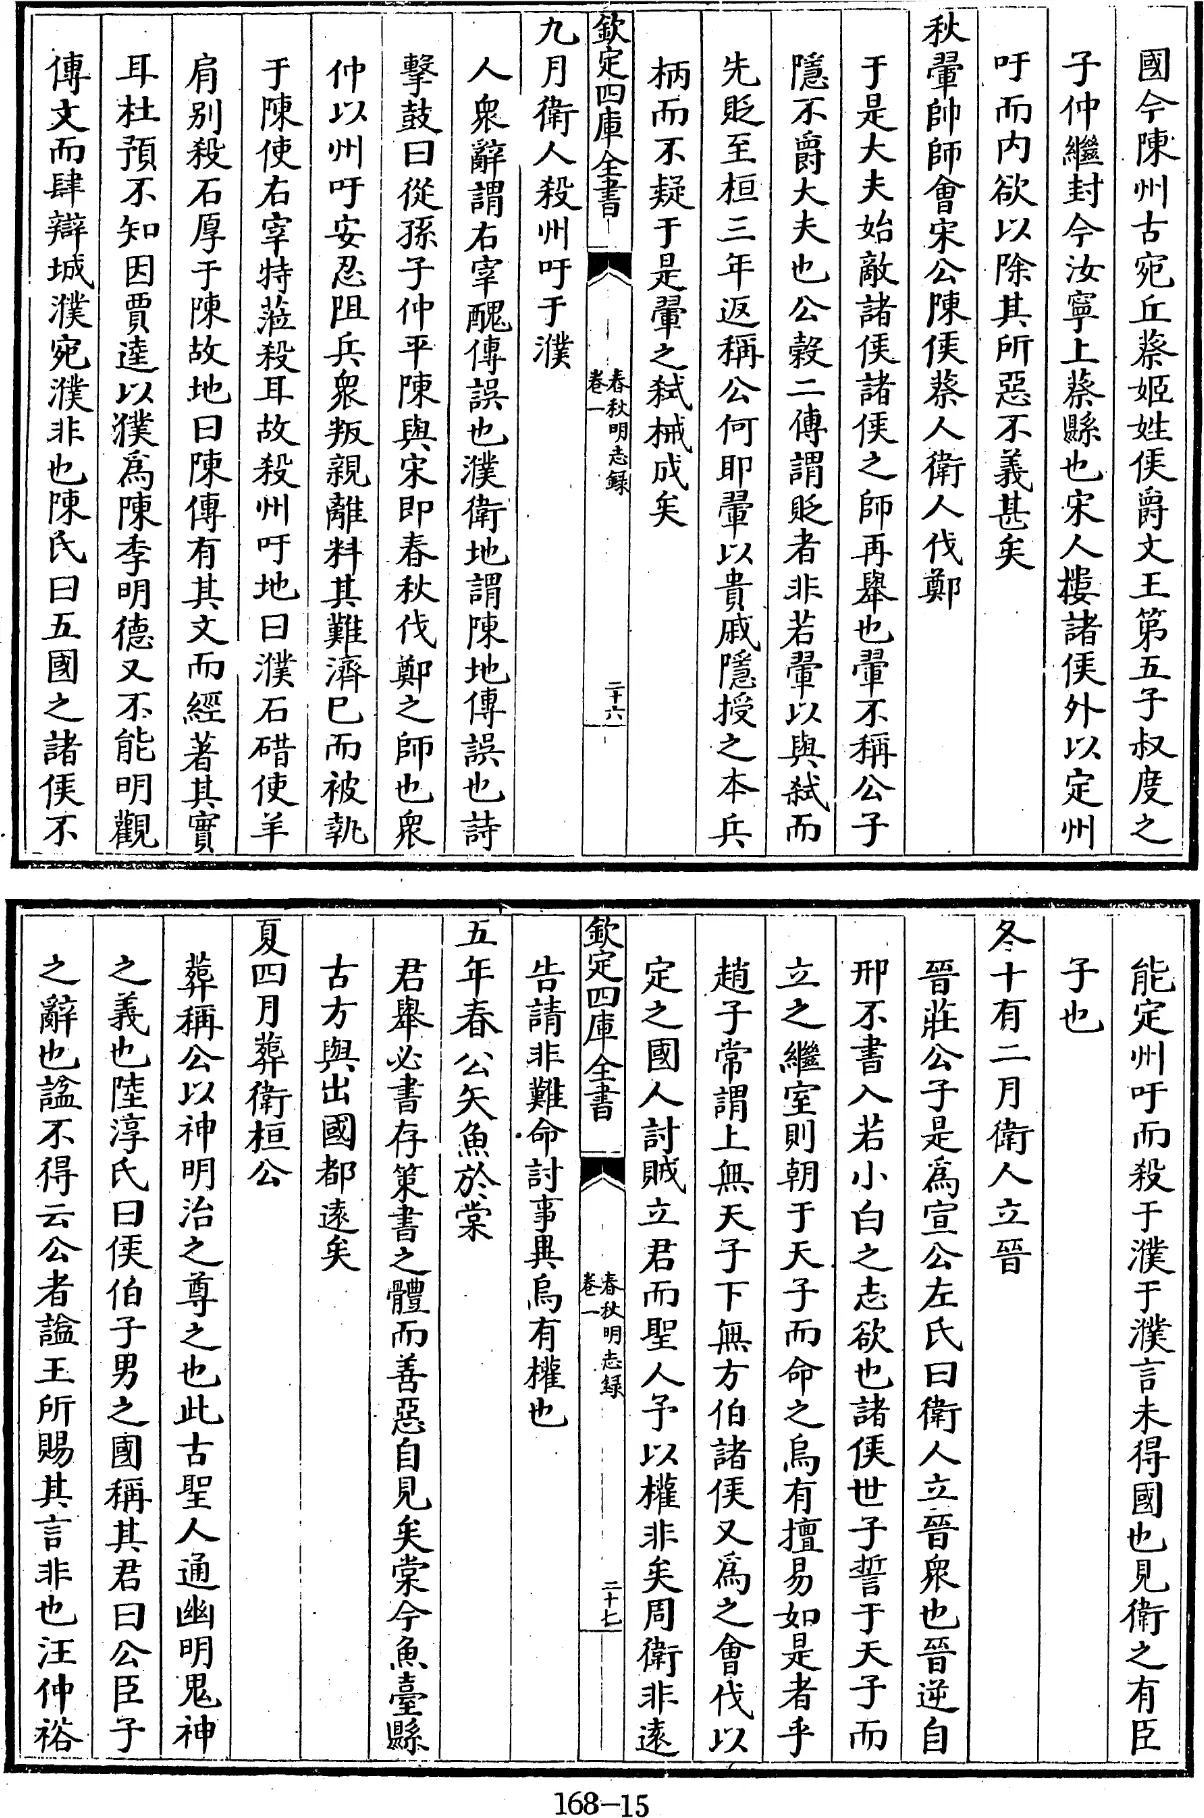 國今陳州古宛丘蔡姬姓侯爵文王第五子叔度之
子仲繼封今汝寧上蔡縣也宋人摟諸侯外以定州
吁而内欲以除其所惡不義甚矣
秋翬帥師會宋公陳侯蔡人衛人伐鄭
于是大夫始敵諸侯諸侯之師再舉也翬不稱公子
隱不爵大夫也公穀二傳謂貶者非若翬以與弑而
先貶至桓三年返稱公何耶翬以貴戚隱授之本兵
柄而不疑于是翬之弑械成矣
欽定四庫全書
春秋明志録
卷一
二十六
九月衛人殺州吁于濮
人衆辭謂右宰醜傳誤也濮衛地謂陳地傳誤也詩
擊鼓曰從孫子仲平陳與宋即春秋伐鄭之師也衆
仲以州吁安忍阻兵衆叛親離料其難濟已而被執
于陳使右宰特蒞殺耳故殺州吁地曰濮石碏使羊
肩别殺石厚于陳故地曰陳傳有其文而經著其實
耳杜預不知因賈逵以濮爲陳季明德又不能明觀
傳文而肆辯城濮宛濮非也陳氏曰五國之諸侯不
能定州吁而殺于濮于濮言未得國也見衛之有臣
子也
冬十有二月衛人立晉
晉莊公子是爲宣公左氏曰衛人立晉衆也晉逆自
邢不書入若小白之志欲也諸侯世子誓于天子而
立之繼室則朝于天子而命之烏有擅易如是者乎
趙子常謂上無天子下無方伯諸侯又爲之會伐以
定之國人討賊立君而聖人予以權非矣周衛非遠
欽定四庫全書
春秋明志録
卷一
二十七
告請非難命討事異烏有權也
五年春公矢魚於棠
君舉必書存策書之體而善惡自見矣棠今魚臺縣
古方與出國都遠矣
夏四月葬衛桓公
葬稱公以神明治之尊之也此古聖人通幽明鬼神
之義也陸淳氏曰侯伯子男之國稱其君曰公臣子
之辭也諡不得云公者諡王所賜其言非也汪仲裕
168-15